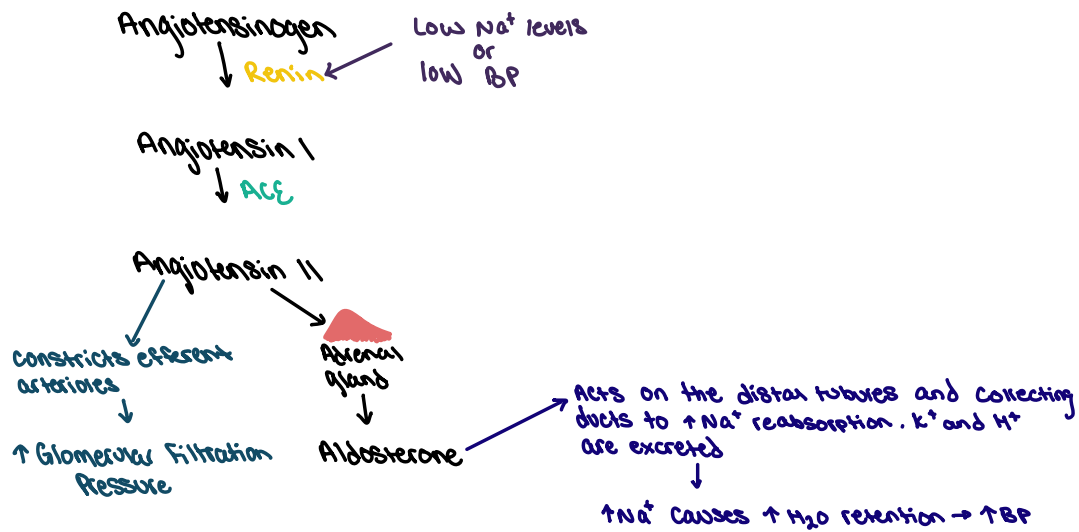 Angiotensinogen
Low Na⁺ levels
or
low BP
Renin
Angiotensin I
ACE
Angiotensin II
constricts efferent
arterioles
↑ Glomerular Filtration
Pressure
Adrenal
gland
Aldosterone
Acts on the distal tubules and collecting
ducts to ↑ Na⁺ reabsorption. K⁺ and H⁺
are excreted
↑ Na⁺ causes ↑ H₂O retention → ↑ BP